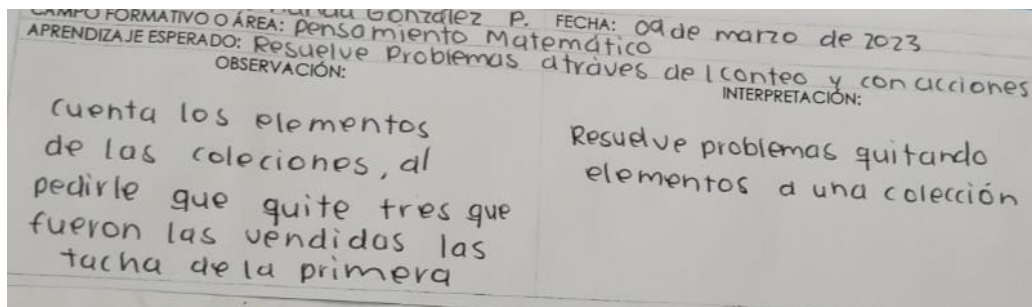 González P. FECHA: 09 de marzo de 2023
CAMPO FORMATIVO O ÁREA: Pensamiento Matemático
APRENDIZAJE ESPERADO: Resuelve Problemas atráves del conteo y con acciones
OBSERVACIÓN:
INTERPRETACIÓN:
cuenta los elementos
de las coleciones, al
pedirle que quite tres que
fueron las vendidas las
tacha de la primera
Resuelve problemas quitando
elementos a una colección